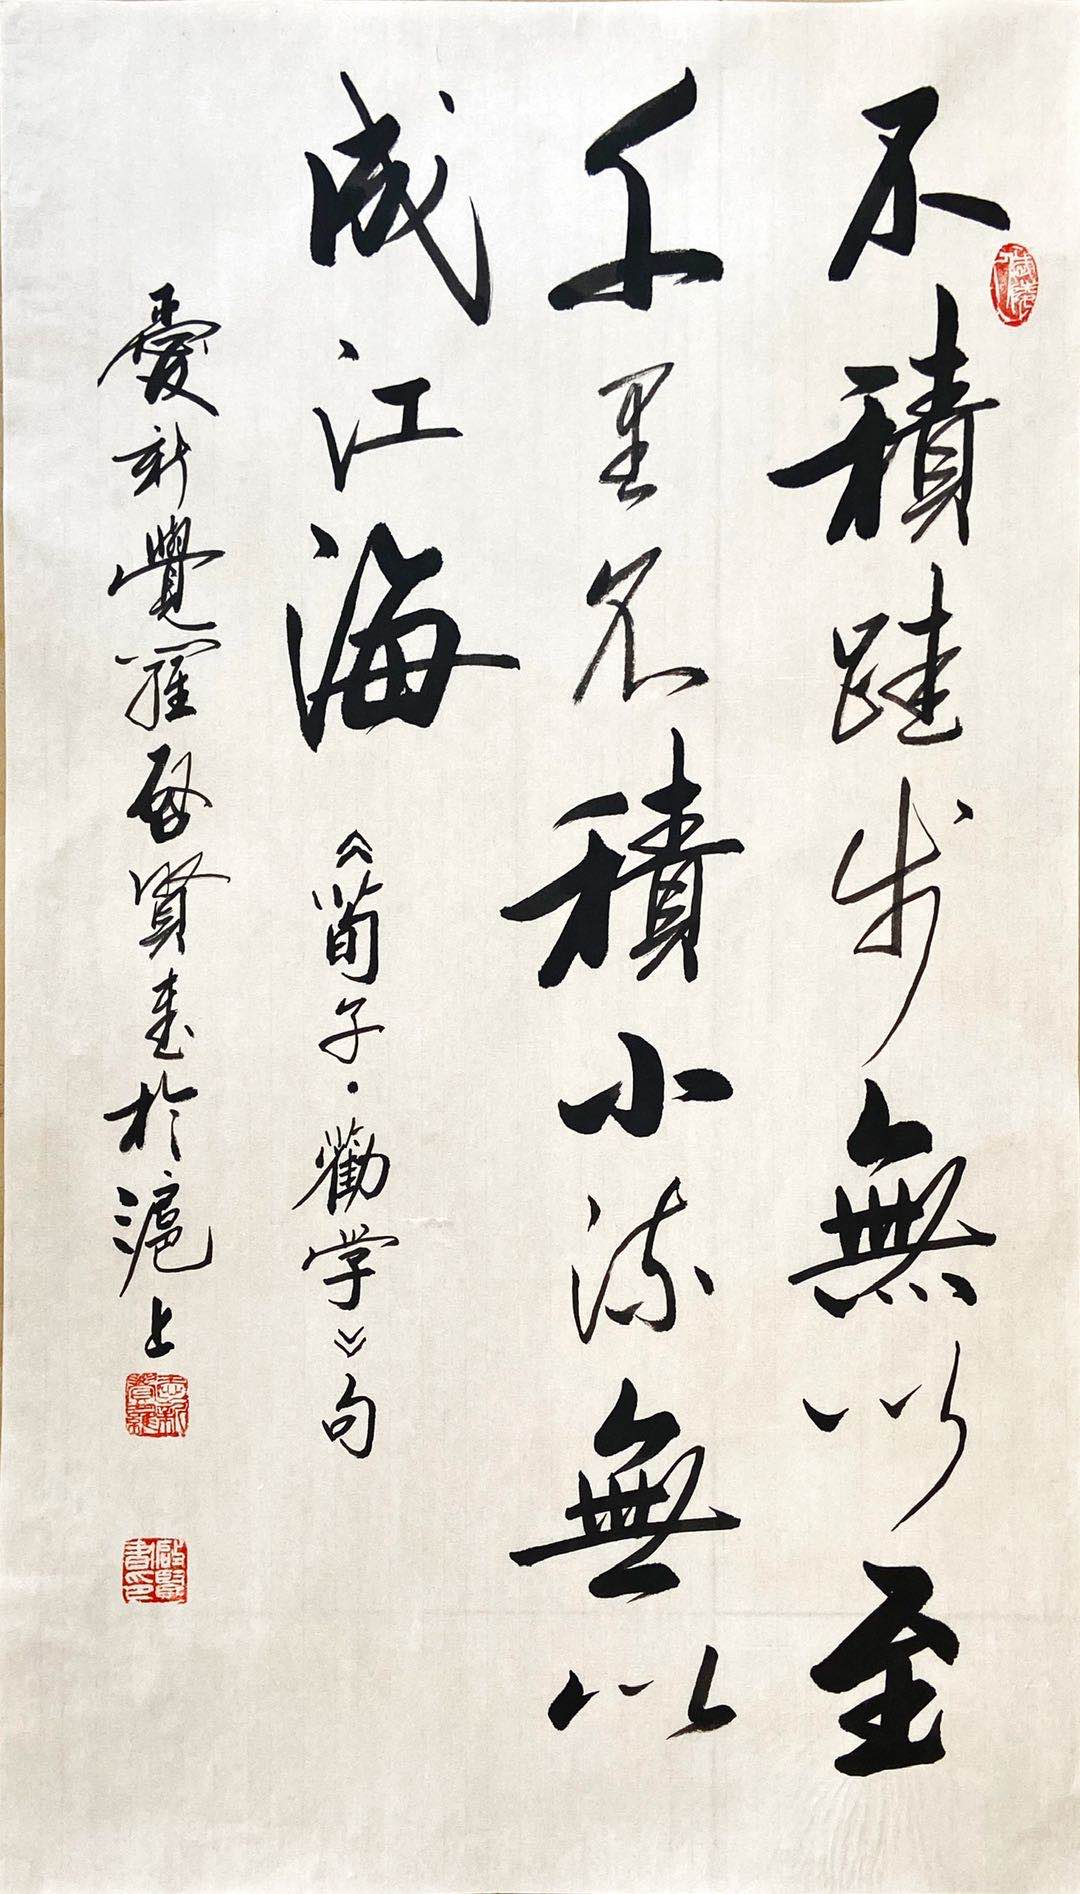 不積跬步無以至
千里不積小流無以
成江海《荀子·勸学》句
愛新覺羅啓賢書於滬上
啟賢書印